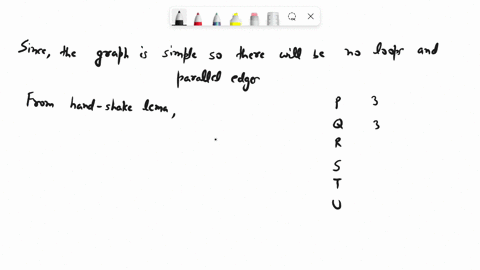 Since, the graph is simple so there will be no loops and
parallel edges
From hand-shake lema,
P 3
Q 3
R
S
T
U